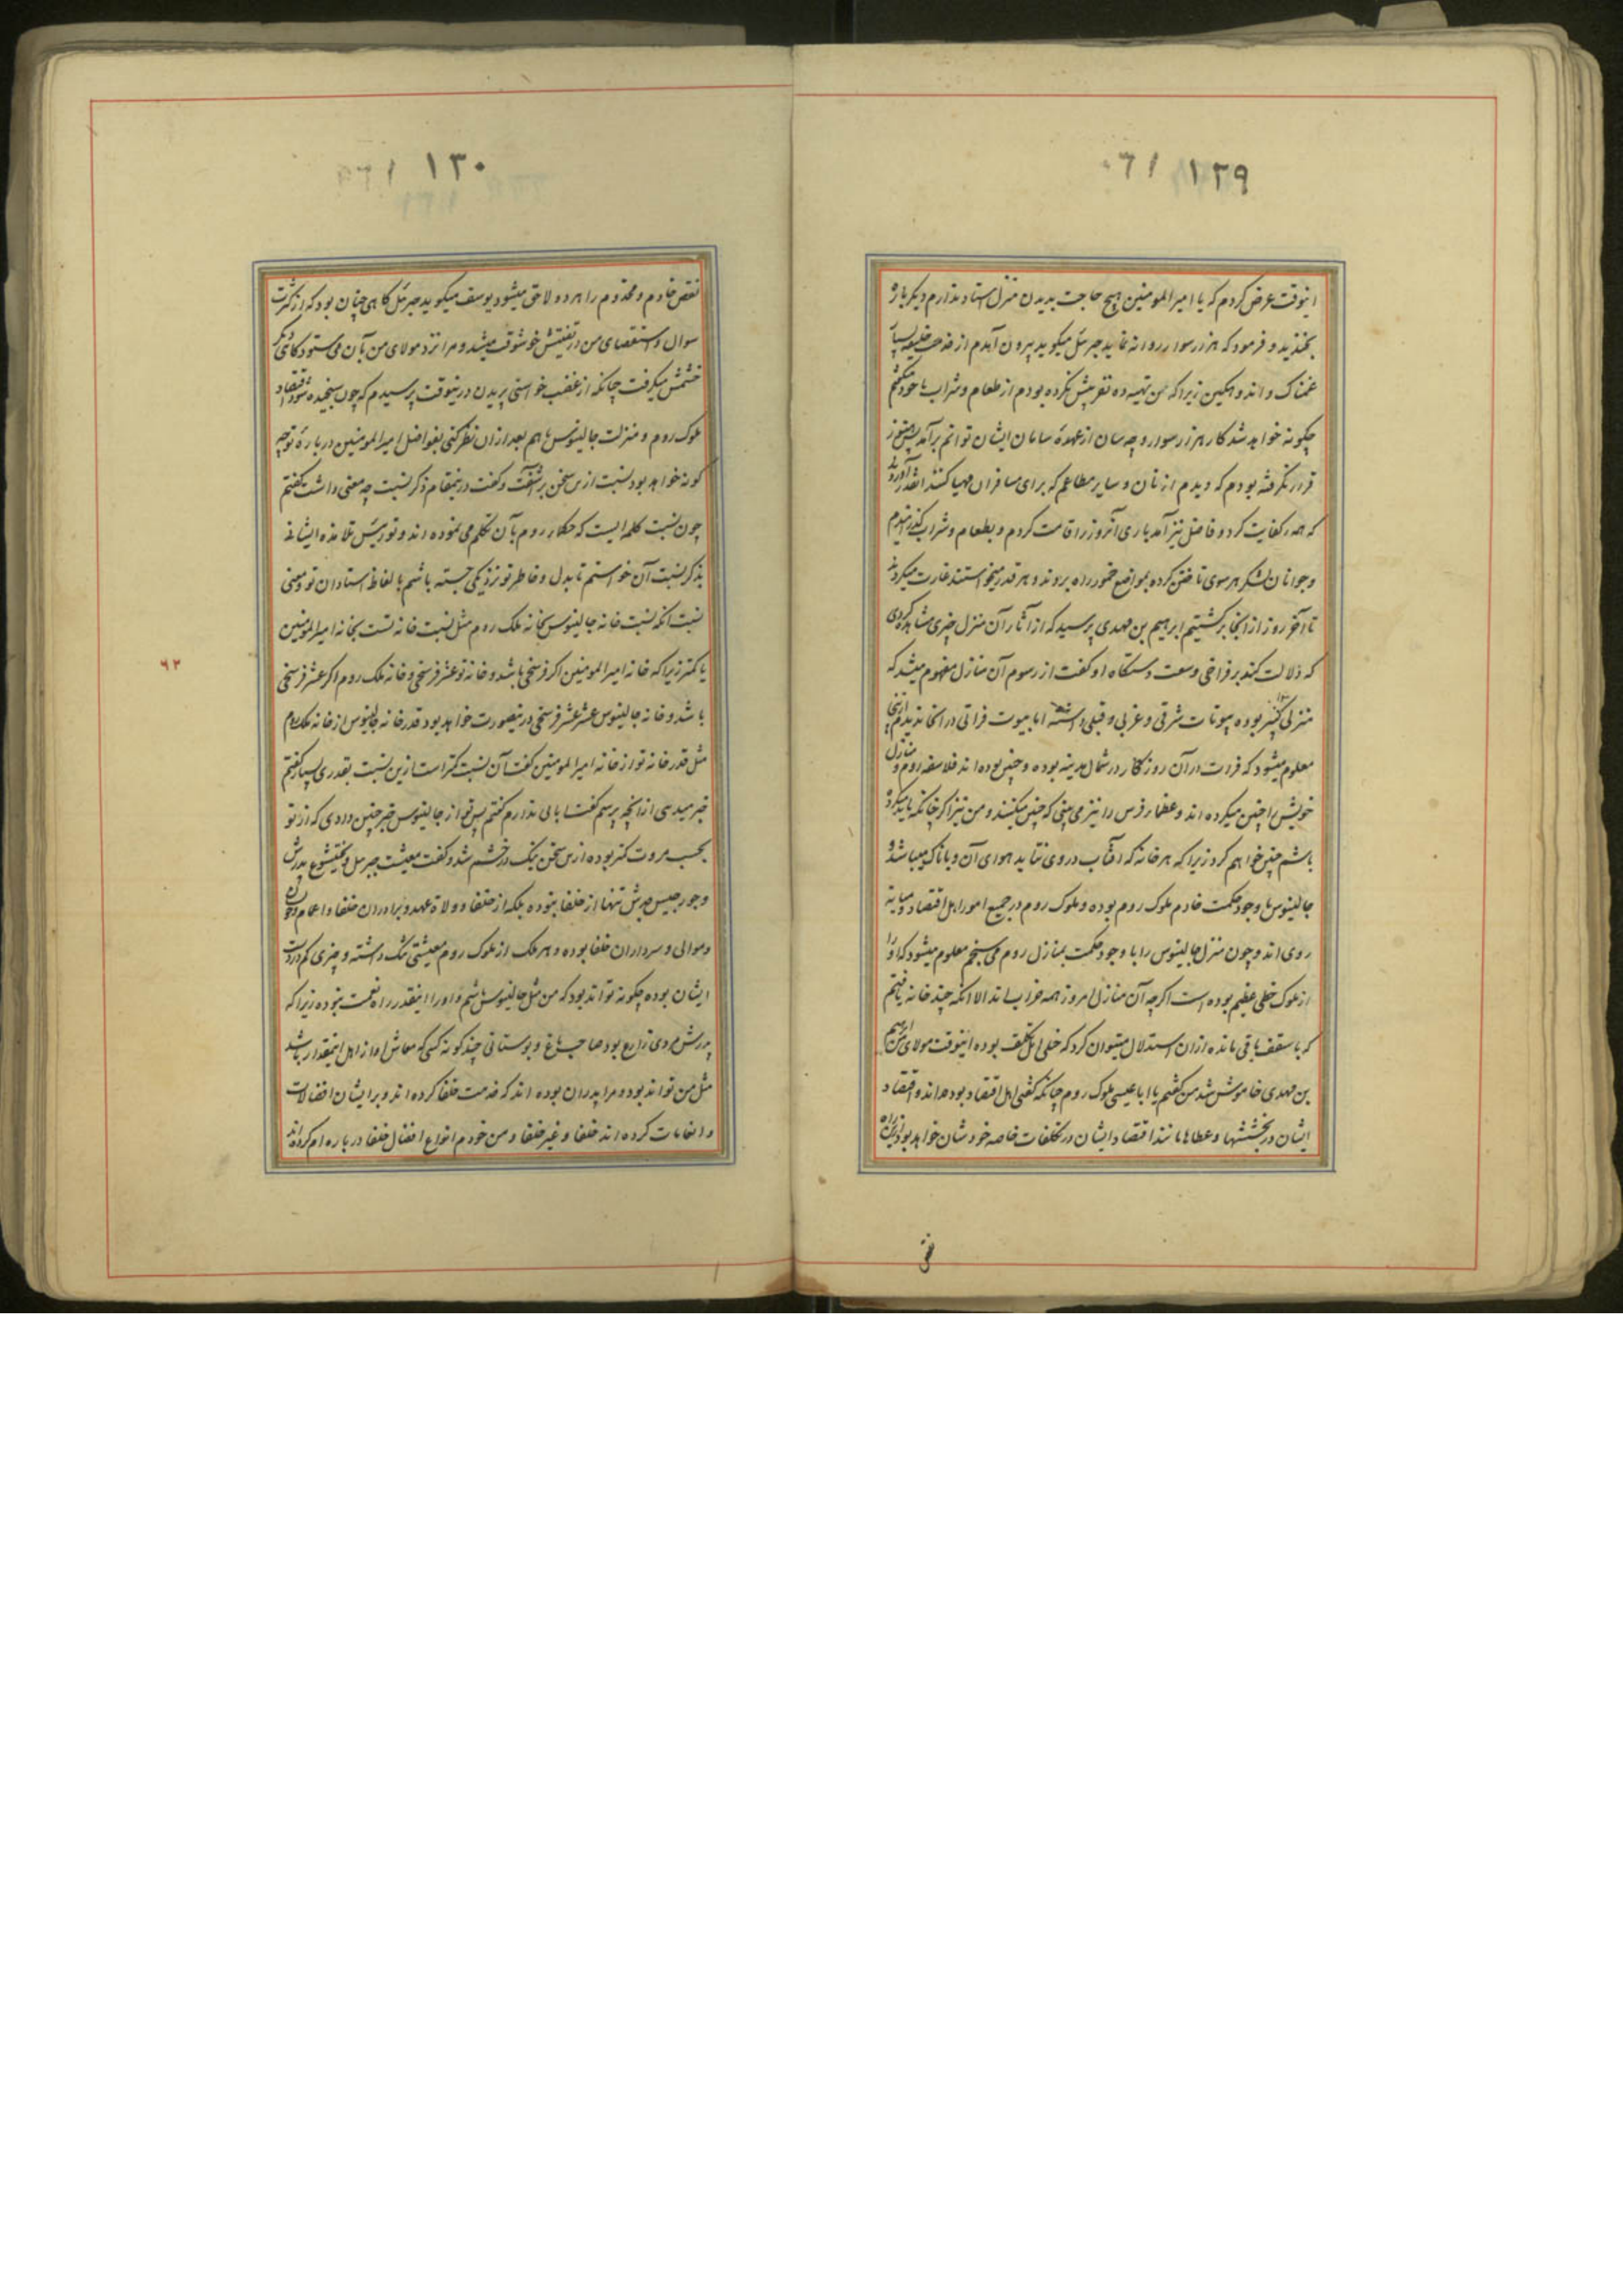 ۱۲۹
اینوقت عرض کردم که یا امیرالمومنین هیچ حاجت بدیدن منزل استاد ندارم دیکر باره
بخندید و فرمود که هزار سوار روانه نمایید جبرئیل میکوید بیرون آمدم از خدمت خلیفه بسیار
غمناک و اندوهکین زیرا که من تهیه ده نفر پیش نکرده بودم از طعام و شراب با خود میکفتم
چکونه خواهد شد کار هزار سوار و چه سان از عهدهٔ سامان ایشان توانم برآمد پس هنوز
قرار نکرفته بودم که دیدم از نان و سایر مطاعم که برای مسافران مهیا کنند آنقدر آوردند
که همه را کفایت کرد و فاضل نیز آمد باری آنروز را اقامت کردم و بطعام و شراب کذرانیدم
و جوانان لشکر هر سوی تاختن کرده بمواضع خمور راه بردند و هر قدر میخواستند غارت میکردند
تا آخر روز از آنجا برکشتیم ابرهیم بن مهدی پرسید که از آثار آن منزل چیزی مشاهده کردی
که دلالت کند بر فراخی و وسعت دستکاه او کفت از رسوم آن منازل مفهوم میشد که
منزلی کثیر بوده بیوتات شرقی و غربی و قبلی داشته اما بیوت فراتی در آنجا ندیدم از اینجا
معلوم میشود که فرات در آن روزکار در شمال مدینه بوده و چنین بوده اند فلاسفه روم و منازل
خویش را چنین میکرده اند و عظماء فرس را نیز می بینی که چنین میکنند و من نیز اکر چنانکه بنا میکرده
باشم چنین خواهم کرد زیرا که هر خانه که آفتاب در وی نتابد هوای آن وباناک میباشد و
جالینوس با وجود حکمت خادم ملوک روم بوده و ملوک روم در جمیع امور اهل اقتصاد و میانه
روی اند و چون منزل جالینوس را با وجود حکمت بمنازل روم می سنجم معلوم میشود که او را
از ملوک خطی عظیم بوده است اکرچه آن منازل امروز همه خراب اند الا آنکه چند خانه یافتم
که با سقف باقی مانده از آن استدلال میتوان کرد که خیلی اهل تکلف بوده اینوقت مولای من ابرهیم
بن مهدی خاموش شد من کفتم یا ابا عیسی ملوک روم چنانکه کفتی اهل اقتصاد بوده اند و اقتصاد
ایشان در بخششها و عطاها مانند اقتصاد ایشان در تکلفات خاصه خودشان خواهد بود از این راه
۱۳۰
نقص خادم و مخدوم را هر دو لاحق میشود یوسف میکوید جبرئیل کاهی چنان بود که از کثرت
سوال و استقصای من در تفتیش خوشوقت میشد و مرا نزد مولای من بآن می ستود کاهی دیکر
خشمش میکرفت چنانکه از غضب خواستی پریدن درینوقت پرسیدم که چون سنجیده شود اقتصاد
ملوک روم و منزلت جالینوس باهم بعد از آن نظر کنی بفواضل امیرالمومنین در بارهٔ تو چه
کونه خواهد بود نسبت ازین سخن برآشفت و کفت درینمقام ذکر نسبت چه معنی داشت کفتم
چون نسبت کلمه ایست که حکماء روم بآن تکلم می نموده اند و تو رئیس تلامذه ایشانی
بذکر نسبت آن خواستم تا بدل و خاطر تو نزدیکی جسته باشم بالفاظ استادان تو و معنی
نسبت آنکه نسبت خانه جالینوس بخانه ملک روم مثل نسبت خانه تست بخانه امیرالمومنین
یا کمتر زیرا که خانه امیرالمومنین اکر فرسخی باشد و خانه تو عشر فرسخی و خانه ملک روم اکر عشر فرسخی
باشد و خانه جالینوس عشر عشر فرسخی درینصورت خواهد بود قدر خانه جالینوس از خانه ملک روم
مثل قدر خانه تو از خانه امیرالمومنین کفت آن نسبت کمتر است ازین نسبت بقدری بسیار کفتم
خبر میدهی از آنچه پرسم کفت ابائی ندارم کفتم پس تو از جالینوس خبر چنین دادی که از تو
بحسب مروت کمتر بوده ازین سخن نیک در خشم شد و کفت معیشت جبرئیل و بختیشوع پدرش
و جورجیس جدش تنها از خلفا نبوده بلکه از خلفا و ولاة عهد و برادران خلفا و اعمام و خویشان
و موالی و سرداران خلفا بوده و هر ملک از ملوک روم معیشتی تنک داشته و چیزی کم در دست
ایشان بوده چکونه تواند بود که من مثل جالینوس باشم و او را اینقدر راه نعمت نبوده زیرا که
پدرش مردی زارع بود صاحب باغ و بوستانی چند کونه کسی که معاش او از اهل اینمقدار باشد
مثل من تواند بود و مرا پدران بوده اند که خدمت خلفا کرده اند و برایشان افضالات
و انعامات کرده اند خلفا و غیر خلفا و من خودم انواع افضال خلفا در باره ام کرده اند
۶۳